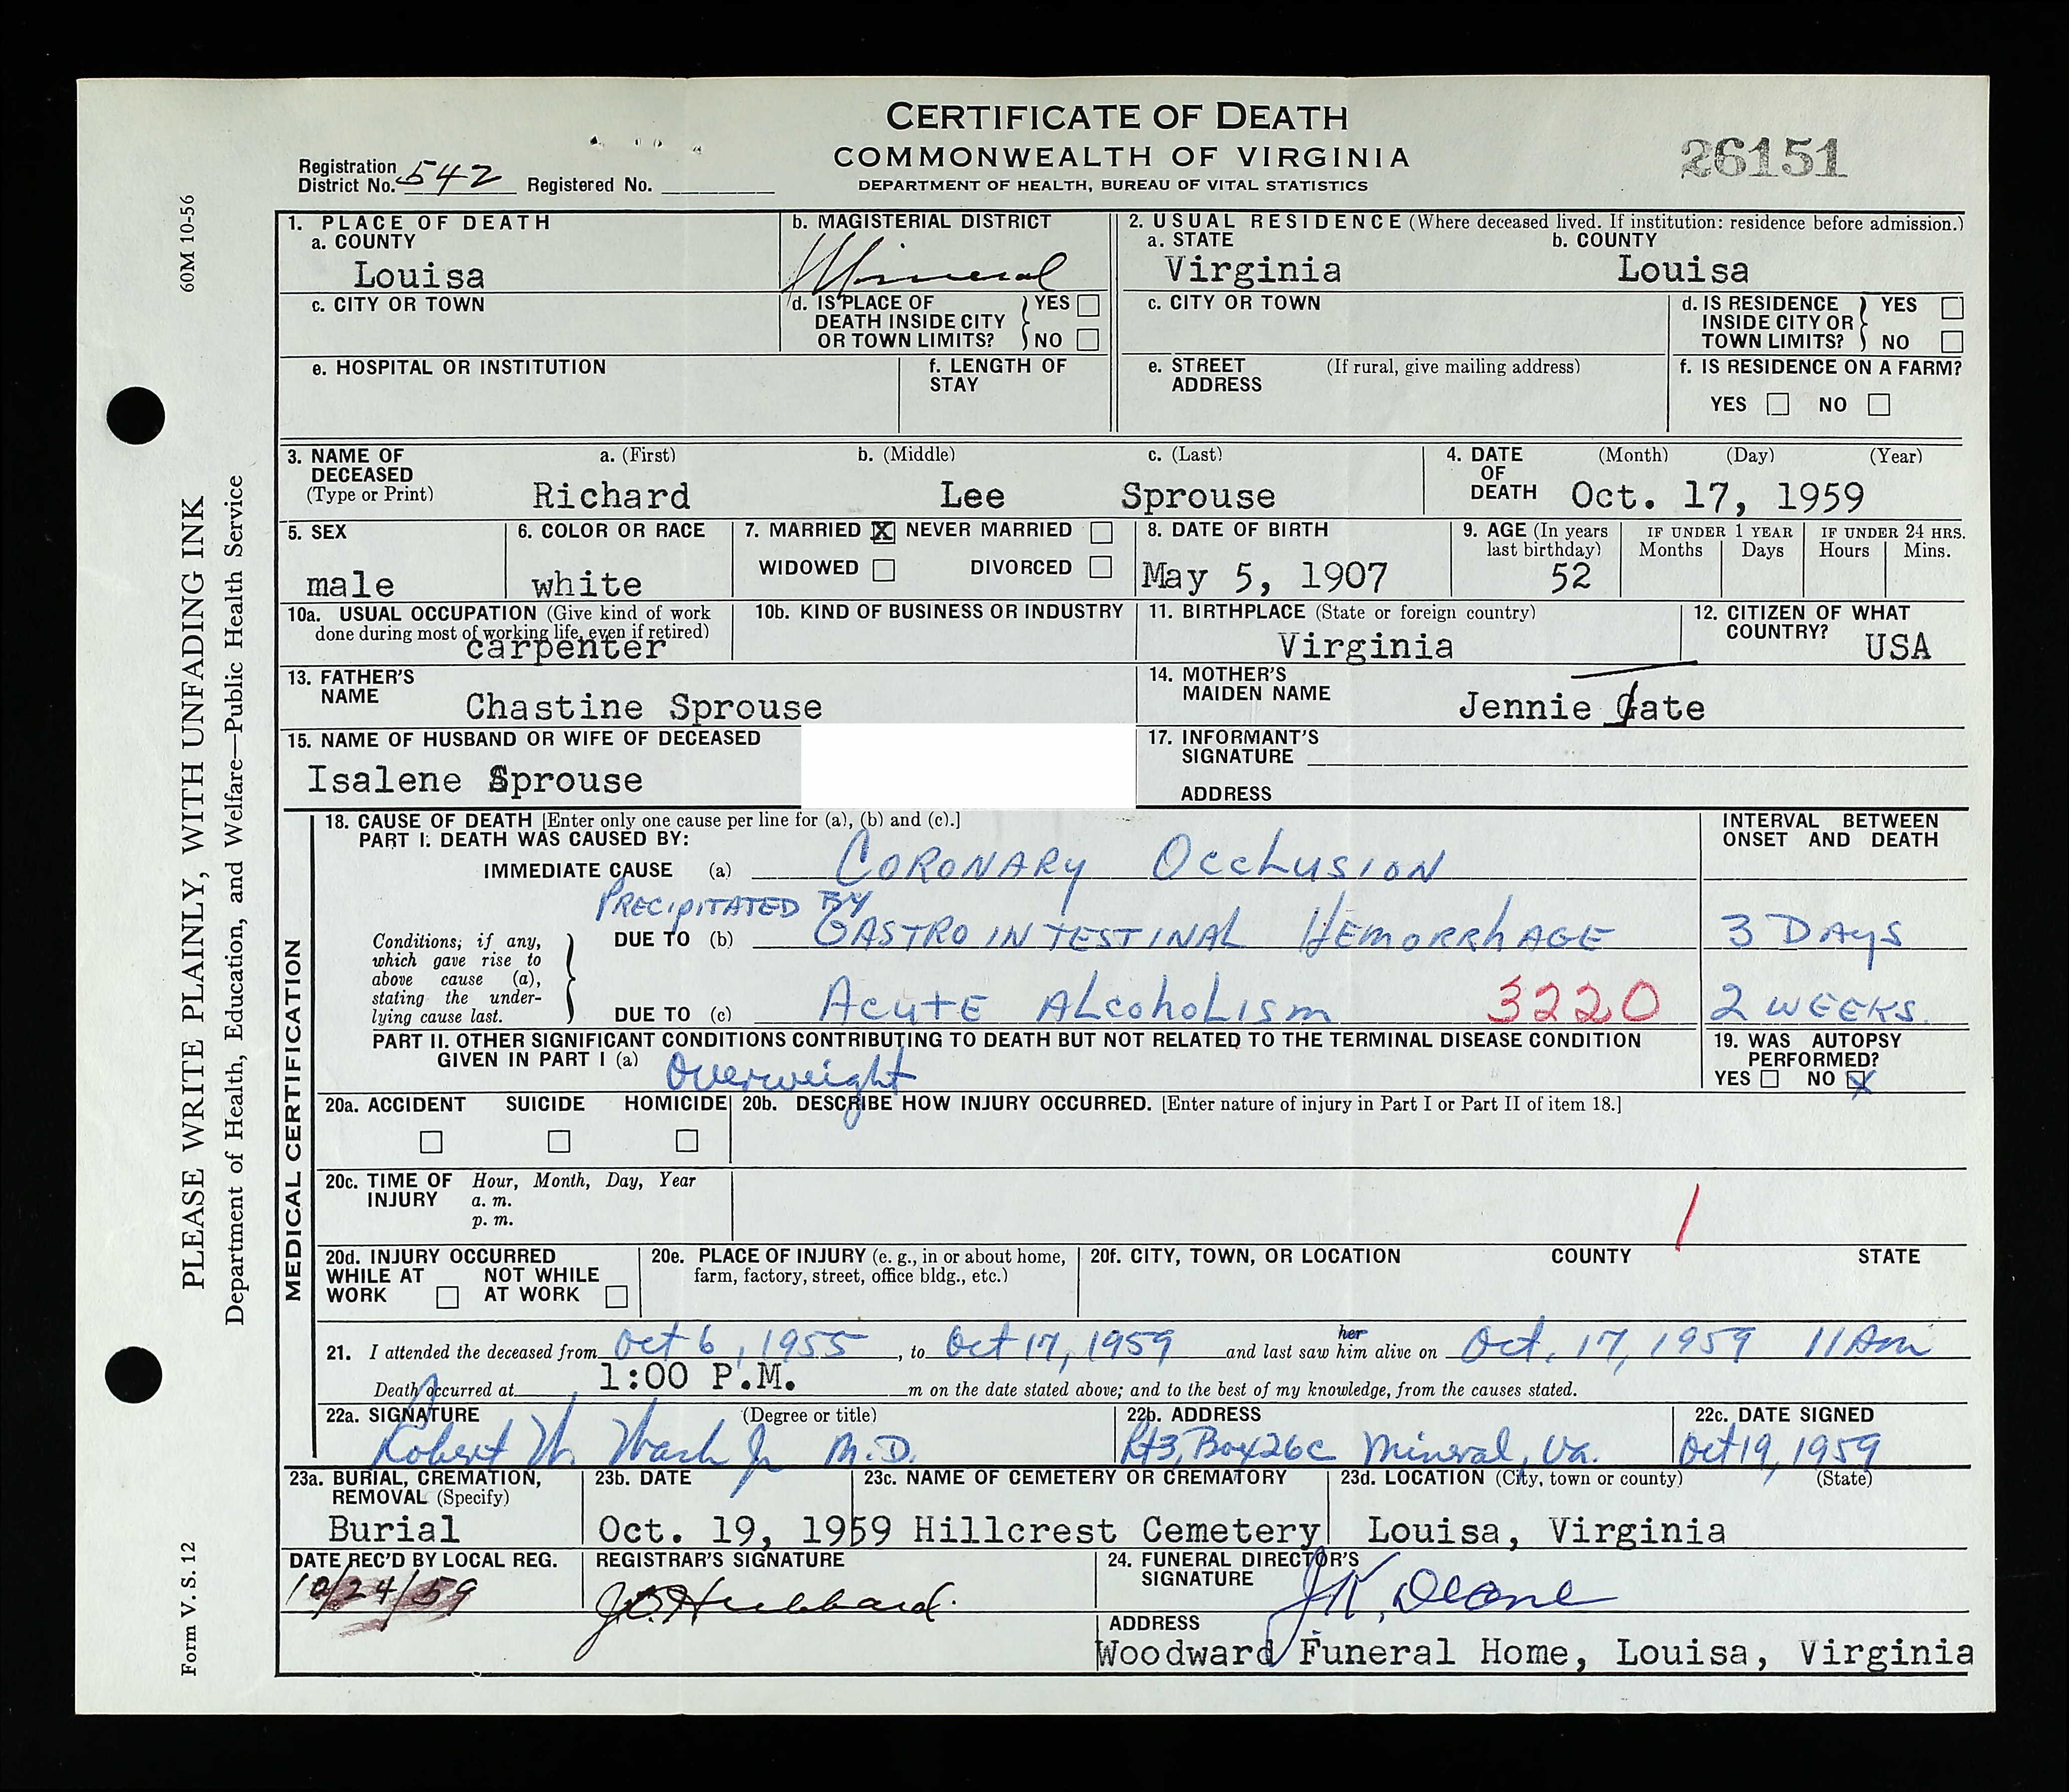 CERTIFICATE OF DEATH
COMMONWEALTH OF VIRGINIA
DEPARTMENT OF HEALTH, BUREAU OF VITAL STATISTICS
26151
Registration District No. 542 Registered No.
60M 10-56
PLEASE WRITE PLAINLY, WITH UNFADING INK
Department of Health, Education, and Welfare—Public Health Service
Form V. S. 12
1. PLACE OF DEATH
a. COUNTY
Louisa
b. MAGISTERIAL DISTRICT
Mineral
2. USUAL RESIDENCE (Where deceased lived. If institution: residence before admission.)
a. STATE
Virginia
b. COUNTY
Louisa
c. CITY OR TOWN
d. IS PLACE OF DEATH INSIDE CITY OR TOWN LIMITS? YES NO
c. CITY OR TOWN
d. IS RESIDENCE INSIDE CITY OR TOWN LIMITS? YES NO
e. HOSPITAL OR INSTITUTION
f. LENGTH OF STAY
e. STREET ADDRESS (If rural, give mailing address)
f. IS RESIDENCE ON A FARM?
YES NO
3. NAME OF DECEASED (Type or Print)
a. (First) b. (Middle) c. (Last)
Richard Lee Sprouse
4. DATE OF DEATH (Month) (Day) (Year)
Oct. 17, 1959
5. SEX
male
6. COLOR OR RACE
white
7. MARRIED X NEVER MARRIED
WIDOWED DIVORCED
8. DATE OF BIRTH
May 5, 1907
9. AGE (In years last birthday)
52
IF UNDER 1 YEAR
Months Days
IF UNDER 24 HRS.
Hours Mins.
10a. USUAL OCCUPATION (Give kind of work done during most of working life, even if retired)
carpenter
10b. KIND OF BUSINESS OR INDUSTRY
11. BIRTHPLACE (State or foreign country)
Virginia
12. CITIZEN OF WHAT COUNTRY?
USA
13. FATHER'S NAME
Chastine Sprouse
14. MOTHER'S MAIDEN NAME
Jennie
15. NAME OF HUSBAND OR WIFE OF DECEASED
Isalene Sprouse
17. INFORMANT'S SIGNATURE
ADDRESS
MEDICAL CERTIFICATION
18. CAUSE OF DEATH [Enter only one cause per line for (a), (b) and (c).]
PART I. DEATH WAS CAUSED BY:
INTERVAL BETWEEN ONSET AND DEATH
IMMEDIATE CAUSE (a) CORONARY OccLUSION
PRECIPITATED BY
Conditions, if any, which gave rise to above cause (a), stating the underlying cause last.
DUE TO (b) GASTROINTESTINAL HEMORRhAGE 3 DAYS
DUE TO (c) ACUTE ALcohoLISM 3220 2 WEEKS.
PART II. OTHER SIGNIFICANT CONDITIONS CONTRIBUTING TO DEATH BUT NOT RELATED TO THE TERMINAL DISEASE CONDITION GIVEN IN PART I (a)
Overweight
19. WAS AUTOPSY PERFORMED?
YES NO X
20a. ACCIDENT SUICIDE HOMICIDE
20b. DESCRIBE HOW INJURY OCCURRED. [Enter nature of injury in Part I or Part II of item 18.]
20c. TIME OF INJURY Hour, Month, Day, Year
a. m.
p. m.
20d. INJURY OCCURRED
WHILE AT WORK NOT WHILE AT WORK
20e. PLACE OF INJURY (e. g., in or about home, farm, factory, street, office bldg., etc.)
20f. CITY, TOWN, OR LOCATION COUNTY STATE
21. I attended the deceased from Oct 6, 1955, to Oct 17, 1959 and last saw her him alive on Oct. 17, 1959 11 Am
Death occurred at 1:00 P.M. m on the date stated above; and to the best of my knowledge, from the causes stated.
22a. SIGNATURE (Degree or title)
Robert W. Wash Jr M.D.
22b. ADDRESS
Rt3, Box26c Mineral, Va.
22c. DATE SIGNED
Oct 19, 1959
23a. BURIAL, CREMATION, REMOVAL (Specify)
Burial
23b. DATE
Oct. 19, 1959
23c. NAME OF CEMETERY OR CREMATORY
Hillcrest Cemetery
23d. LOCATION (City, town or county) (State)
Louisa, Virginia
DATE REC'D BY LOCAL REG.
10/24/59
REGISTRAR'S SIGNATURE
Hubbard.
24. FUNERAL DIRECTOR'S SIGNATURE
J.K. Deane
ADDRESS
Woodward Funeral Home, Louisa, Virginia